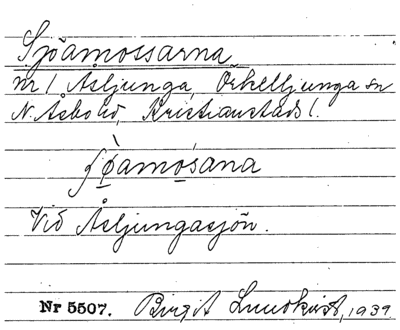 Sjöamossarna
nr 1 Åsljunga, Örkelljunga sn
N. Åsbo hd, Kristianstads l.
ʃø̀amośana
Vid Åsljungasjön.
Nr 5507. Birgit Lundkvist, 1939.